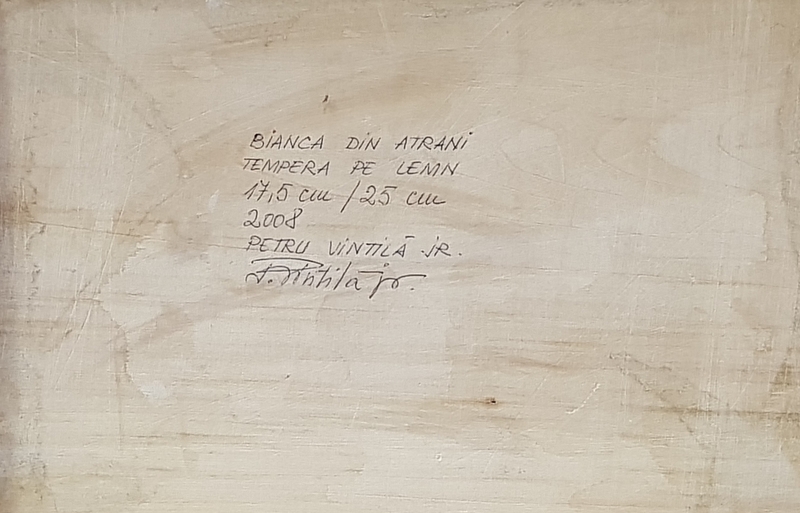 BIANCA DIN ATRANI
TEMPERA PE LEMN
17,5 cm / 25 cm
2008
PETRU VINTILĂ JR.
P. Vintilă jr.